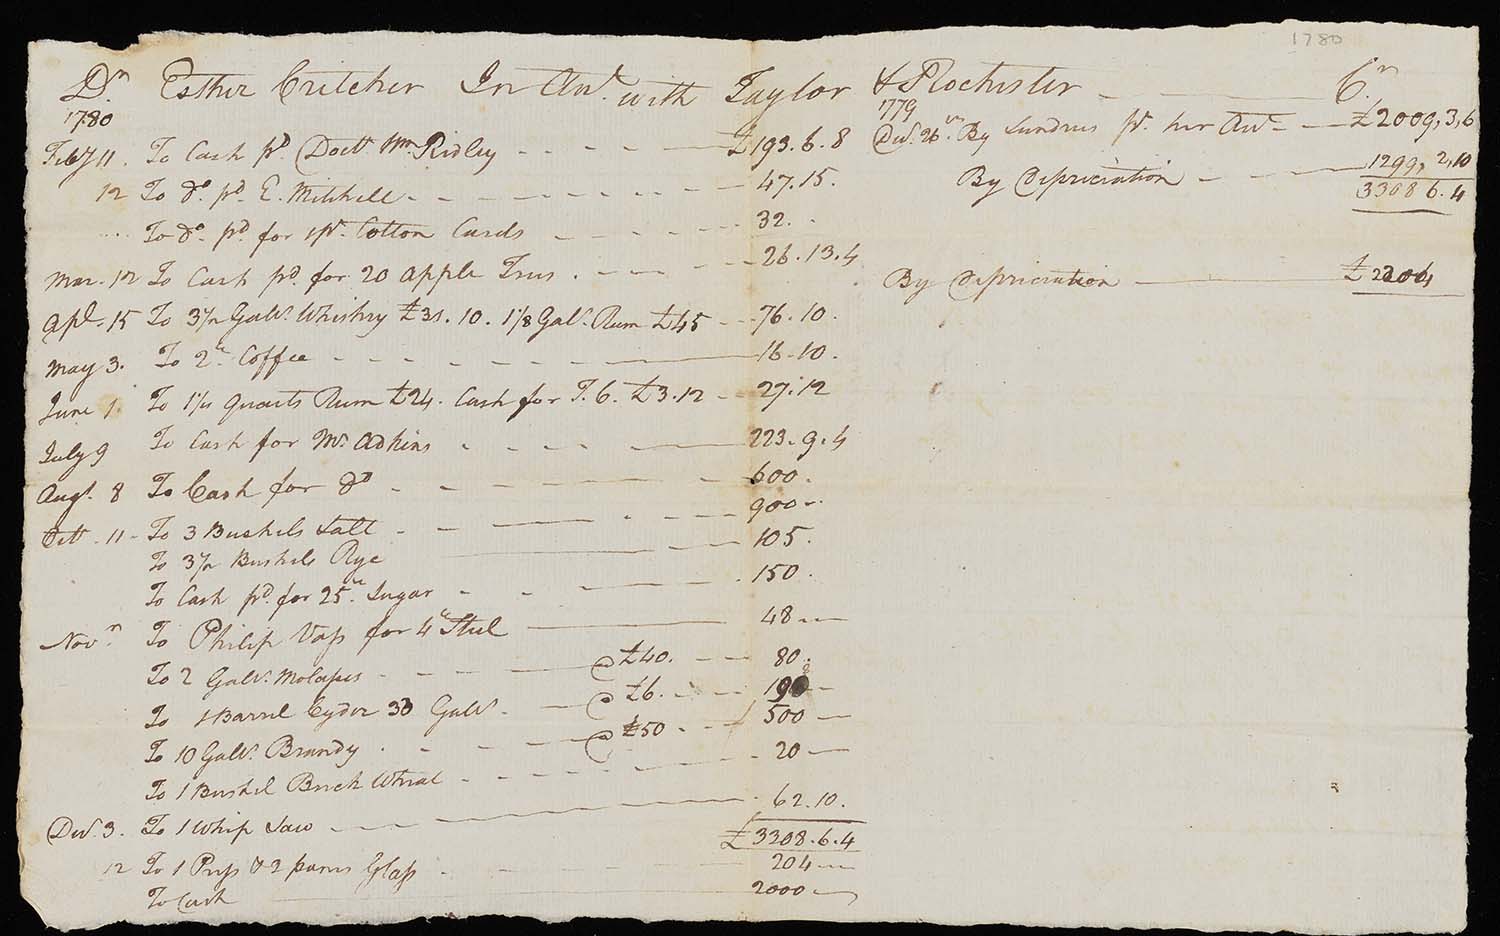 1780
Dr. Esther Critcher In Acct. with Taylor & Rochester Cr.
1780
Feby 11 To Cash pd. Doctr Wm Ridley £193.6.8
12 To do. pd. E. Mitchell 47.15.
To do. pd for 1 pr. Cotton Cards 32.
Mar. 12 To Cash pd. for 20 apple Trees 26.13.4
Apl. 15 To 3½ Galls. Whiskey £31.10. 1⅛ Gall. Rum £45 76.10.
May 3. To 2 lb Coffee 16.10.
June 1. To quarts Rum £24. Cash for T. C. £3.12 27.12
July 9 To Cash for Mr. Adkins 223.9.4
Augt. 8 To Cash for do 600.
Octr. 11 To 3 Bushels Salt 900
To 3½ Bushels Rye 105.
To Cash pd. for 25 lb Sugar 150.
Novr. To Philip Vass for 4 lb Steel 48
To 2 Galls. Molasses @ £40. 80.
To 1 Barrel Cyder 33 Galls. @ £6. 198
To 10 Galls. Brandy @ £50 500
To 1 Bushel Buck Wheat 20
Decr. 3. To 1 Whip Saw 62.10.
£3308.6.4
12 To 1 & 2 panes Glass 204
To Cash 2000
1779
Decr. 26th. By Sundries pr. her Acct £2009,3,6
By Depreciation 1299,2,10
3308 6.4
By Depreciation £2204